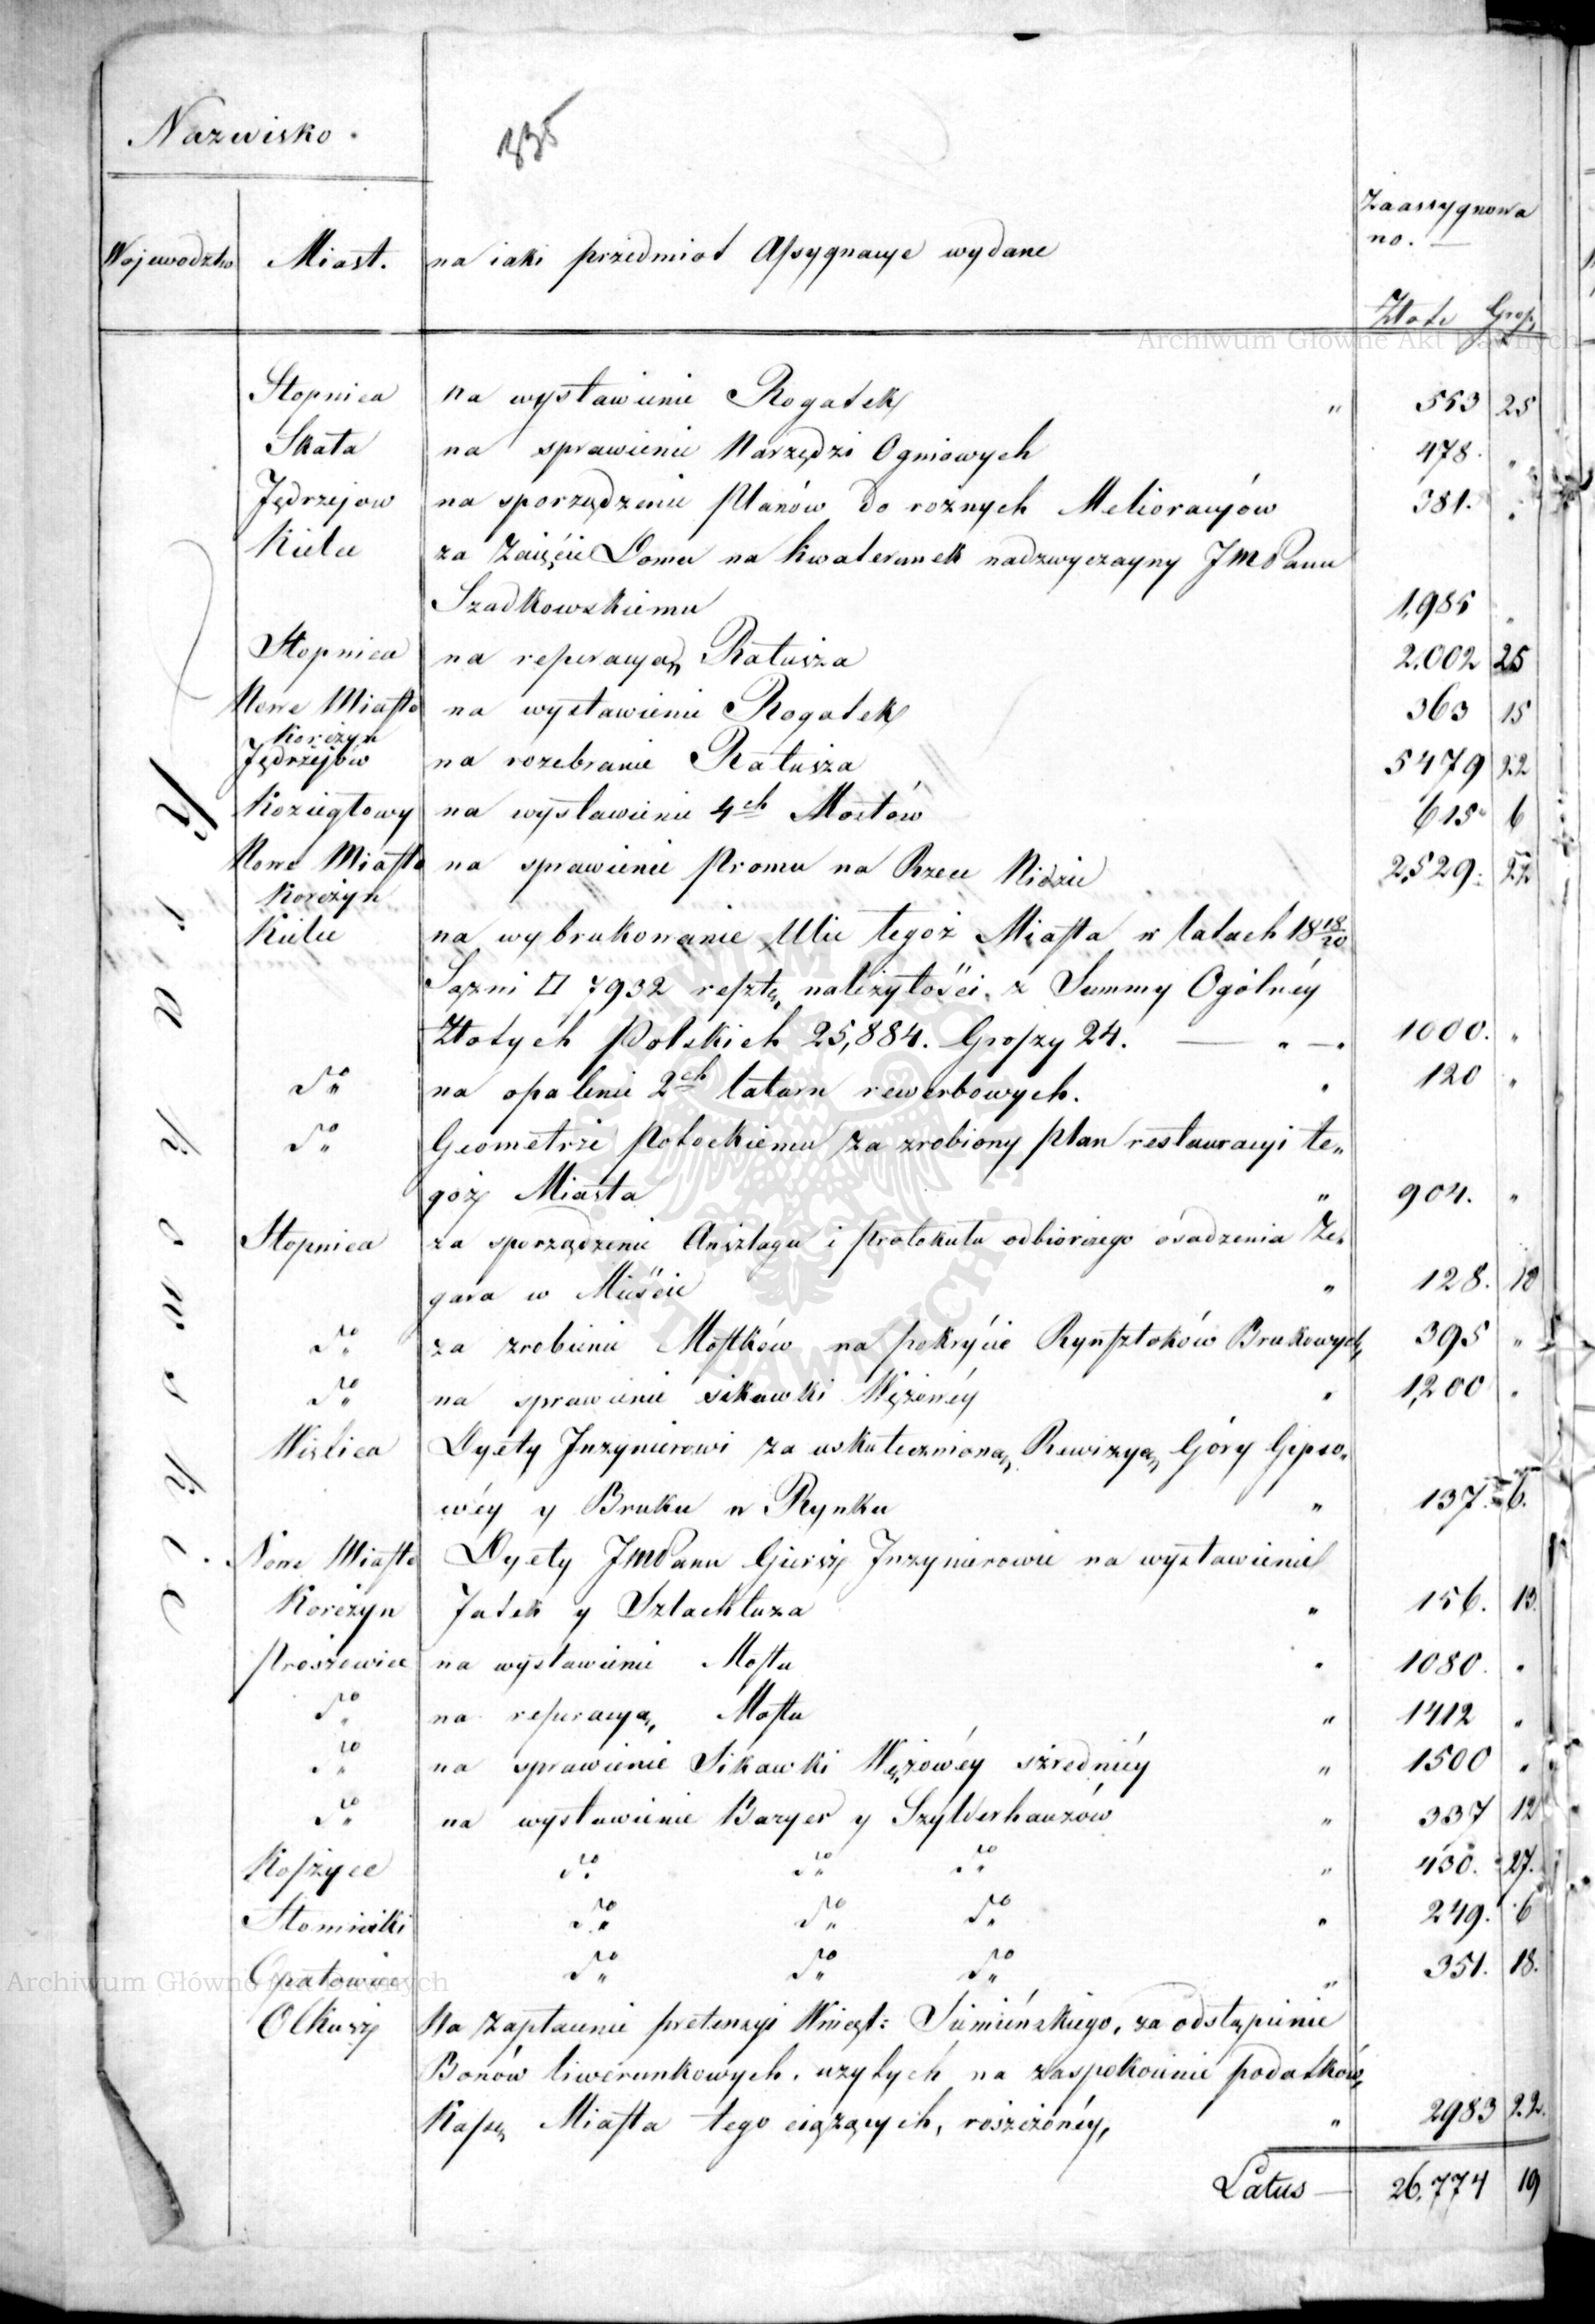 335
Nazwisko.
Zaassygnowa
no. —
Wojewodztw Miast. na iaki przedmiot Assygnacye wydane
Złote Gross,
Archiwum Główne Akt Dawnych
Stopnica na wystawienie Rogatek „ 553 25
Skała na sprawienie Narzędzi Ogniowych 478. „
Jędrzejow na sporządzenie Planów do roznych Melioracyów 381. „
Kielce za Zaięcie Domu na kwaterunek nadzwyczayny JmPanu
Szadkowskiemu 1,985 „
Stopnica na reperacyą Ratusza 2.002 25
Nowe Miasto na wystawienie Rogatek 363 15
Korczyn
Jędrzejów na rozebranie Ratusza 5479 22
Koziegłowy na wystawienie 4ch Mostów 615 6
Nowe Miasto na sprawienie Promu na Rzece Nidzie 2,529. 22
Korczyn
Kielce na wybrukowanie Ulic tegoż Miasta w latach 18 18/20
Sązni □ 7932 resztę należytości z Summy Ogólnéy
Złotych Polskich 25,884. Groszy 24. — „ — 1000. „
do na opalenie 2ch latarn rewerbowych. „ 120 „
do Geometrze Potockiemu za zrobiony Plan restauracyi te„
goż Miasta „ 904. „
Stopnica za sporządzenie Anszlagu i Protokułu odbiorczego osadzenia Ze„
gara w Mieście „ 128. 10
do za zrobienie Mostków na pokrycie Rynsztoków Brukowych, 395 „
do na sprawienie sikawki Wężowéy „ 1,200 „
Wislica Dyety Inzynierowi za uskutecznioną Rewizyą Góry Gipso„
wéy y Bruku w Rynku „ 137. 6.
Nowe Miasto Dyety JmPanu Giersz Inzynierowi na wystawienie
Korczyn Jatek y Szlachtuza „ 156. 13.
Proszowice na wystawienie Mostu „ 1080. „
do na reperacyą Mostu „ 1412 „
do na sprawienie Sikawki Wężowéy szredniéy „ 1500 „
do na wystawienie Baryer y Szylderhauzów „ 337 12
Koszyce do do do „ 430. 27.
Słomniki do do do „ 249. 6
Opatowiec do do do „ 351. 18.
Archiwum Główne Akt Dawnych
Olkusz Na zapłacenie pretensyi Siemieńskiego, za odstąpienie
Bonów liwerunkowych, uzytych na zaspokoienie podatków,
Kassę Miasta tego ciążących, roszczonéy, „ 2983 22.
Latus — 26,774 19
Krakowskie